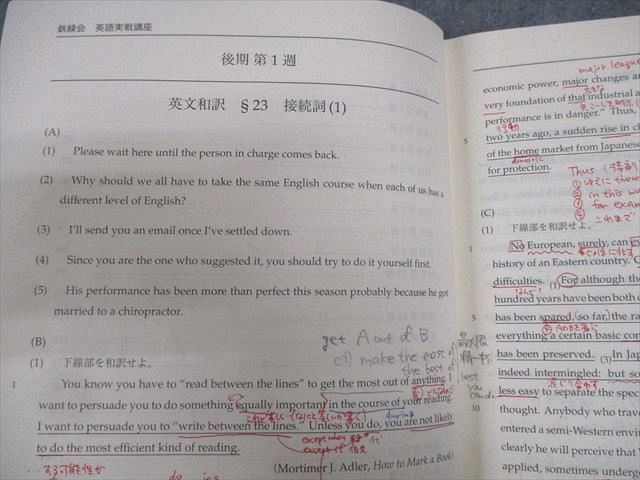 鉄緑会 英語実戦講座
後期 第1週
英文和訳 §23 接続詞(1)
(A)
(1) Please wait here until the person in charge comes back.
(2) Why should we all have to take the same English course when each of us has a
different level of English?
(3) I'll send you an email once I've settled down.
(4) Since you are the one who suggested it, you should try to do it yourself first.
(5) His performance has been more than perfect this season probably because he got
married to a chiropractor.
(B)
get A out of B
cf) make the most of
the best of
最大限
(1) 下線部を和訳せよ。
1 You know you have to "read between the lines" to get the most out of anything. I
want to persuade you to do something equally important in the course of your reading.
during
I want to persuade you to "write between the lines." Unless you do, you are not likely
except when
except if
to do the most efficient kind of reading.
(Mortimer J. Adler, How to Mark a Book)
major league
economic power, major changes a
very foundation of that industrial a
performance is in danger." Thus,
5 two years ago, a sudden rise in c
of the home market from Japanese
domestic
for protection.
Thus
① ゆえに
② in this wa
③ for exam
④ これまで
(C)
(1) 下線部を和訳せよ。
1 No European, surely, can
history of an Eastern country.
difficulties. (1) For although the
hundred years have been both
has been spared, (so far,) the ra
5 everything a certain basic con
has been preserved. (3) In Jap
indeed intermingled: but so
less easy to separate the spe
thought. Anybody who trav
10 entered a semi-Western envir
clearly he will perceive that
applied, sometimes underge